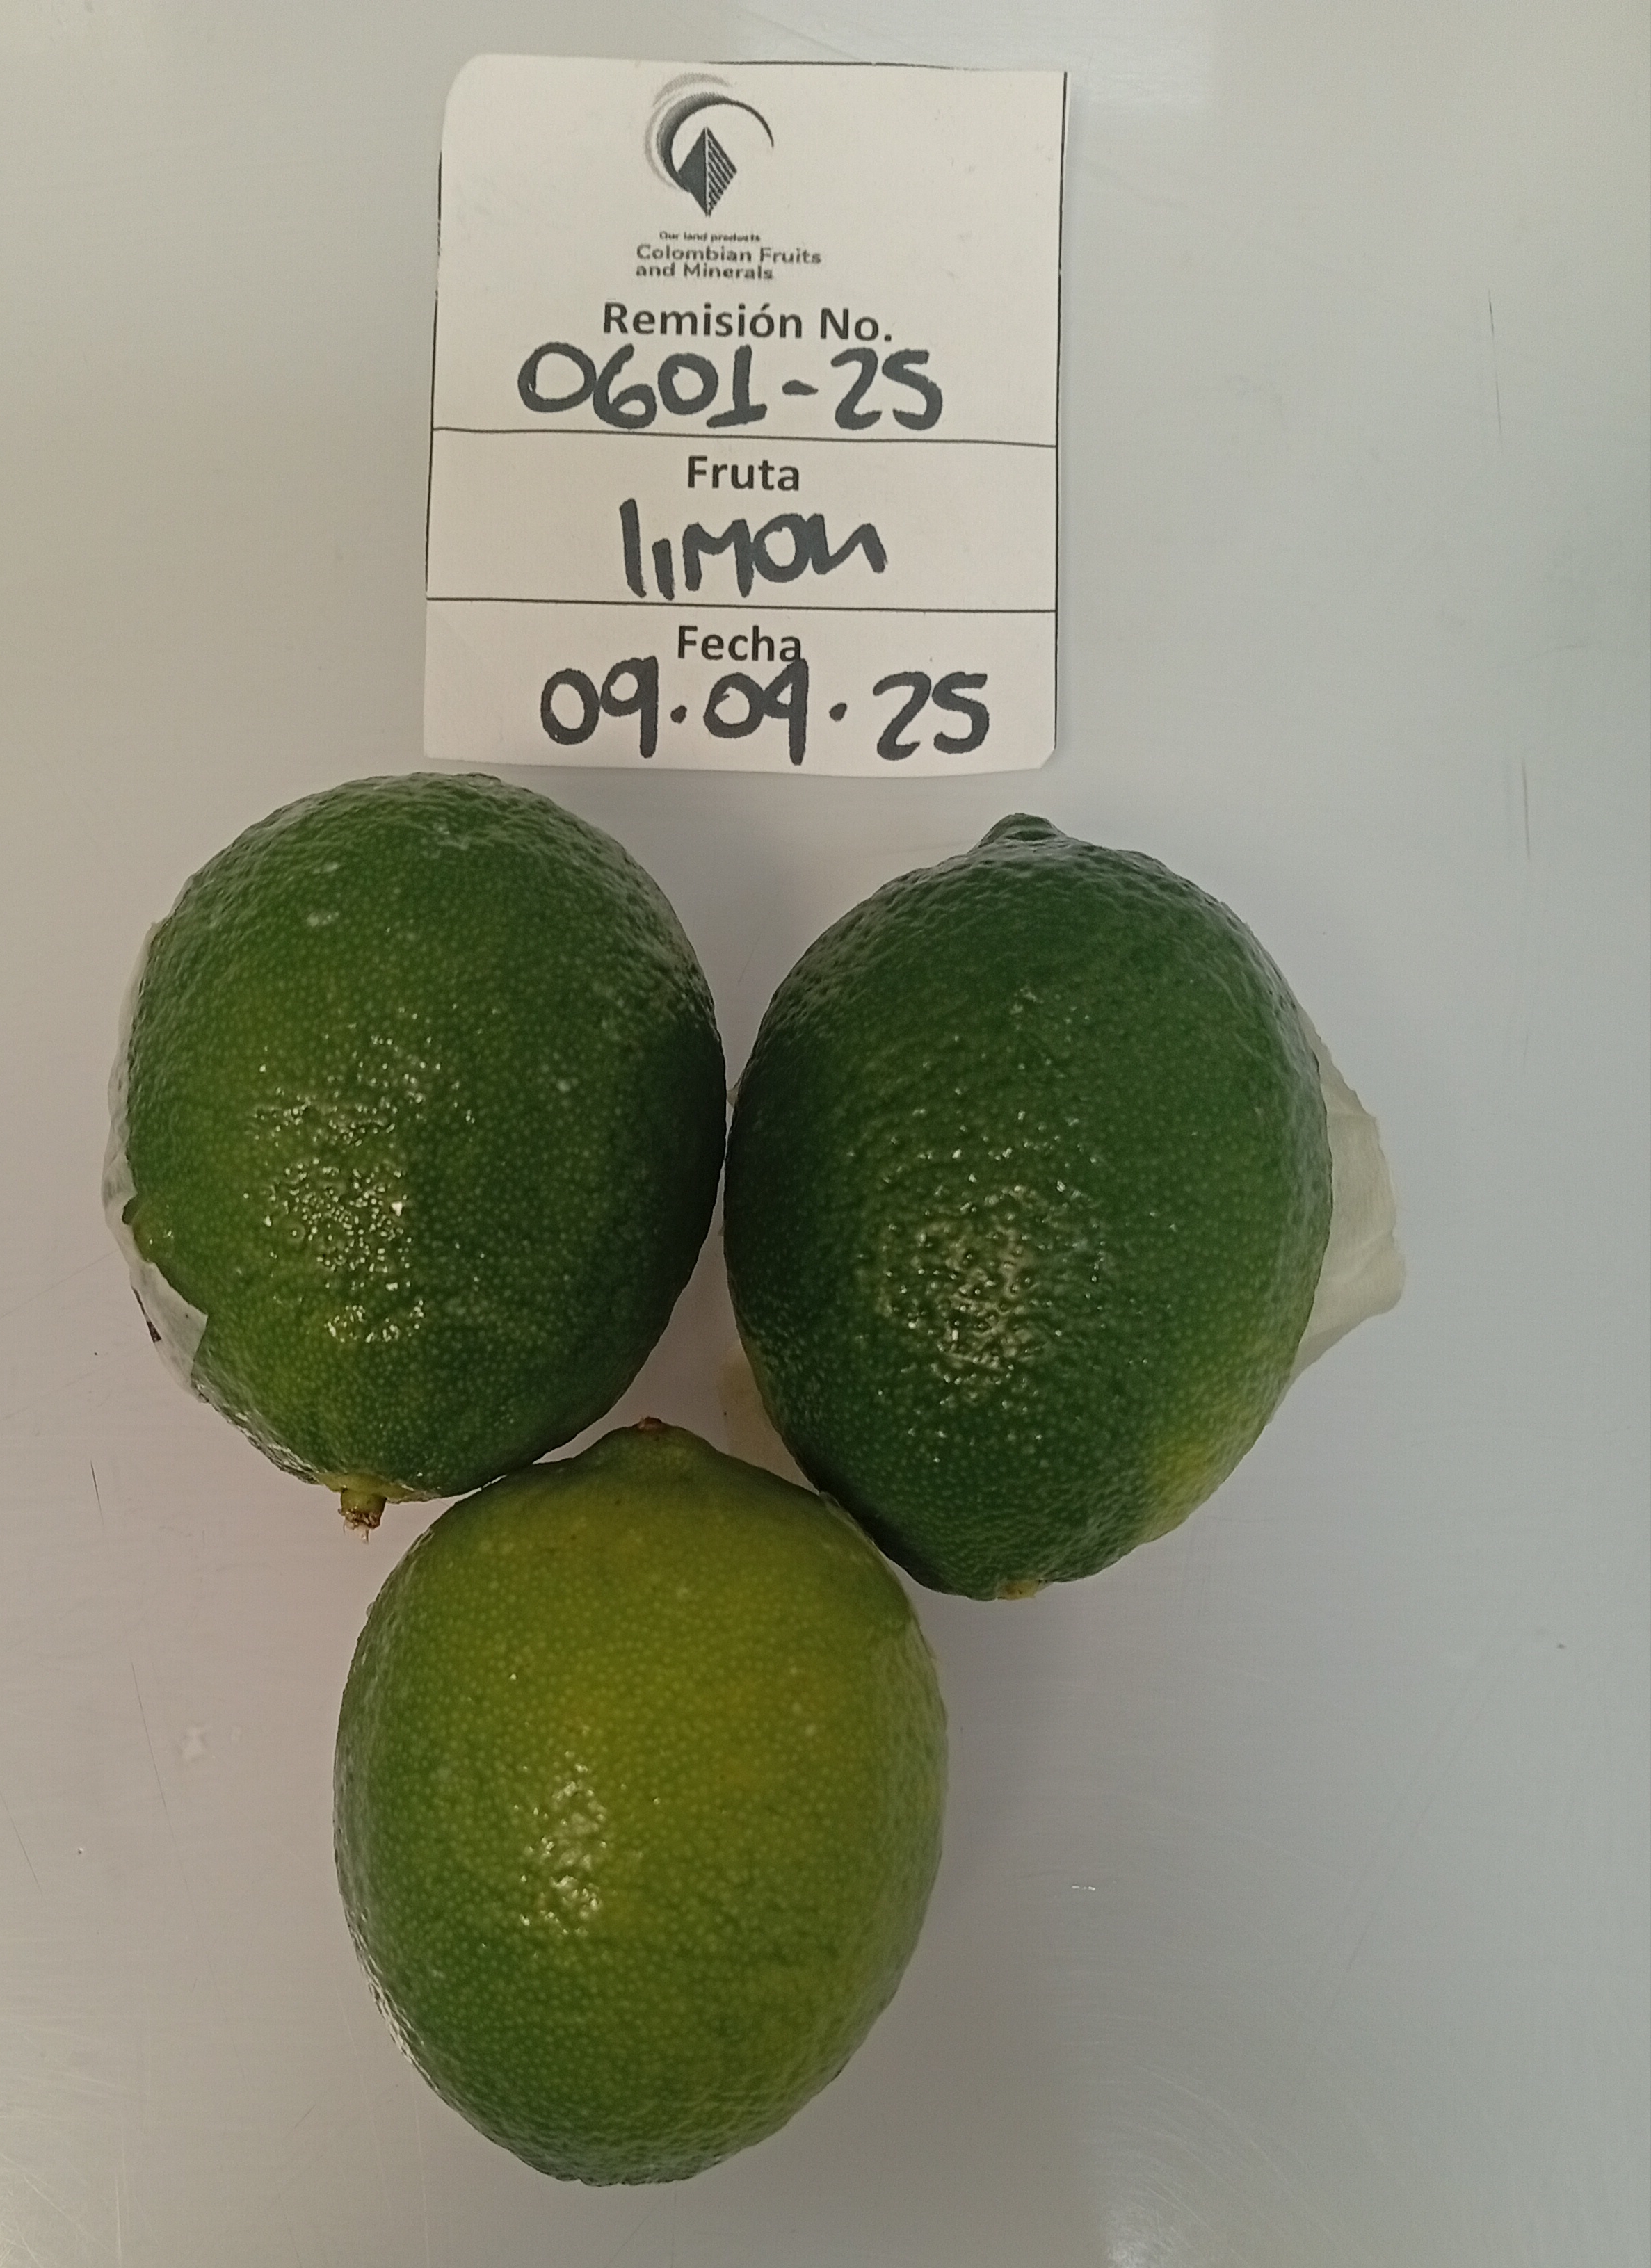 Our land products
Colombian Fruits
and Minerals
Remisión No.
0601-25
Fruta
limon
Fecha
09.09.25